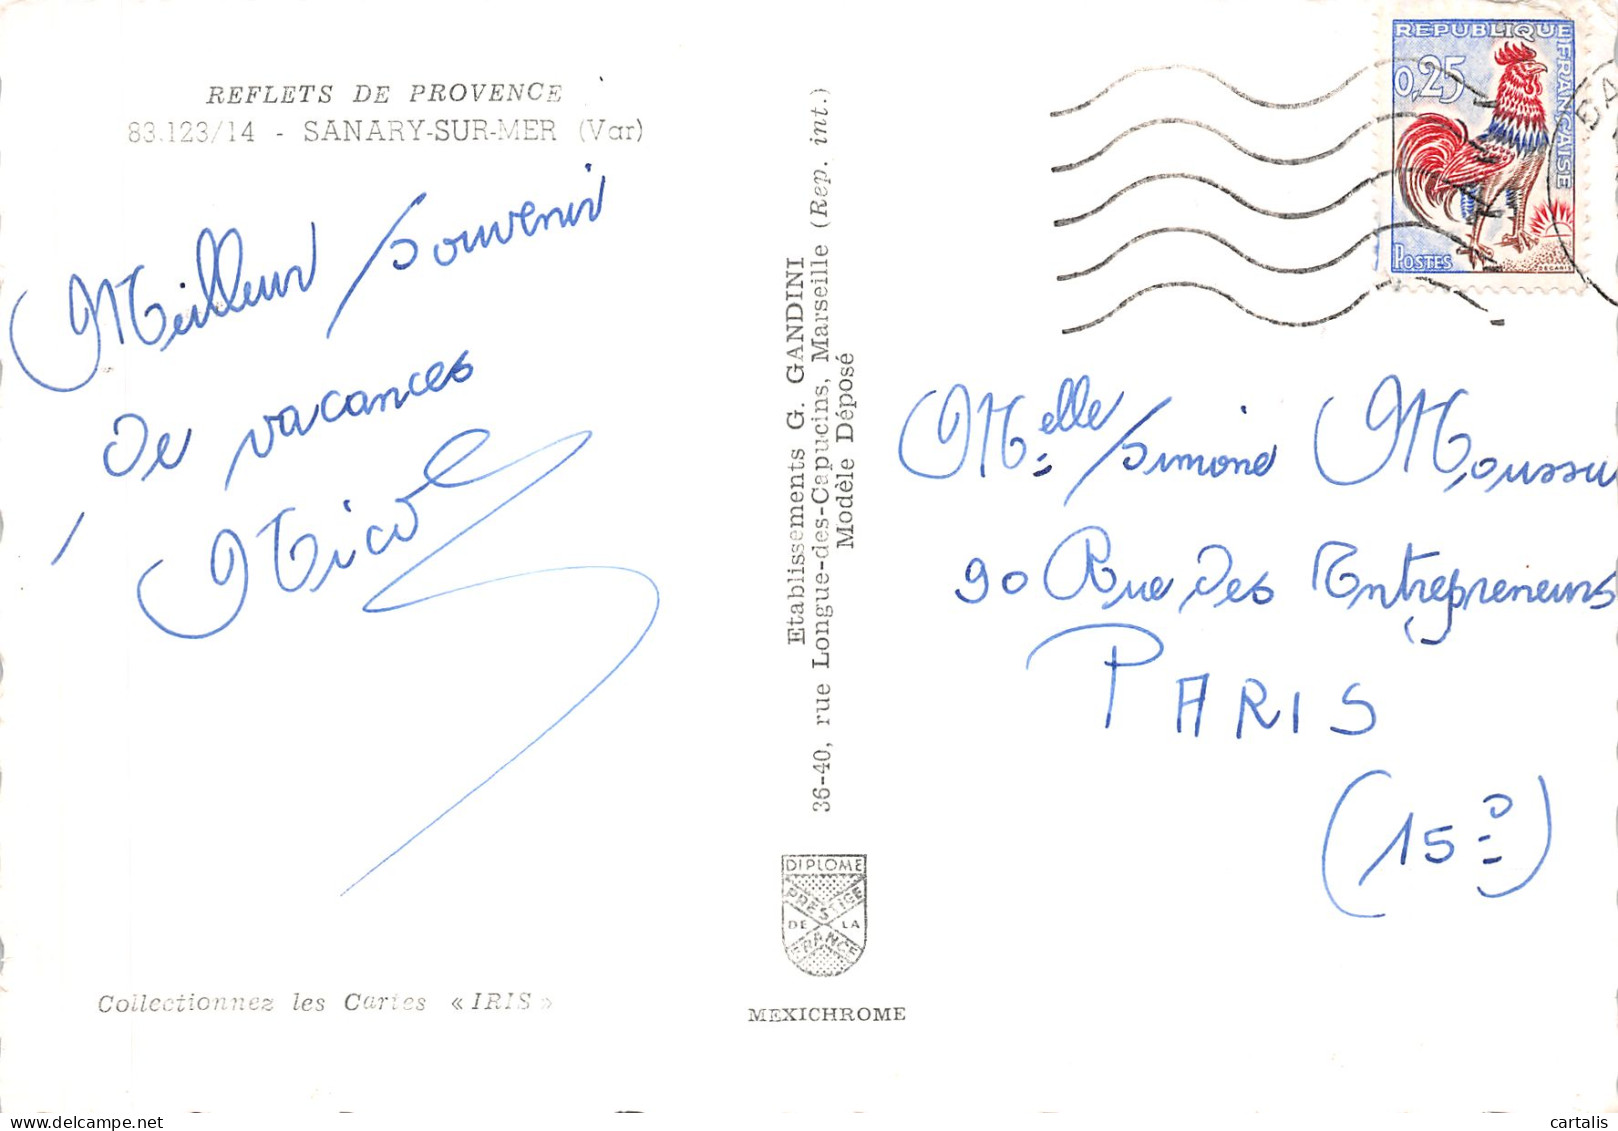 REFLETS DE PROVENCE
83.123/14 - SANARY-SUR-MER (Var)
Meilleur souvenir
de vacances
Nicole
Collectionnez les Cartes « IRIS »
Etablissements G. GANDINI
36-40, rue Longue-des-Capucins, Marseille (Rep. int.)
Modèle Déposé
DIPLOME
PRESTIGE
DE LA
FRANCE
MEXICHROME
REPUBLIQUE
FRANÇAISE
0,25
POSTES
DECARIS
Melle Simone Moussu
90 Rue des Entrepreneurs
PARIS
(15°)
cartalis